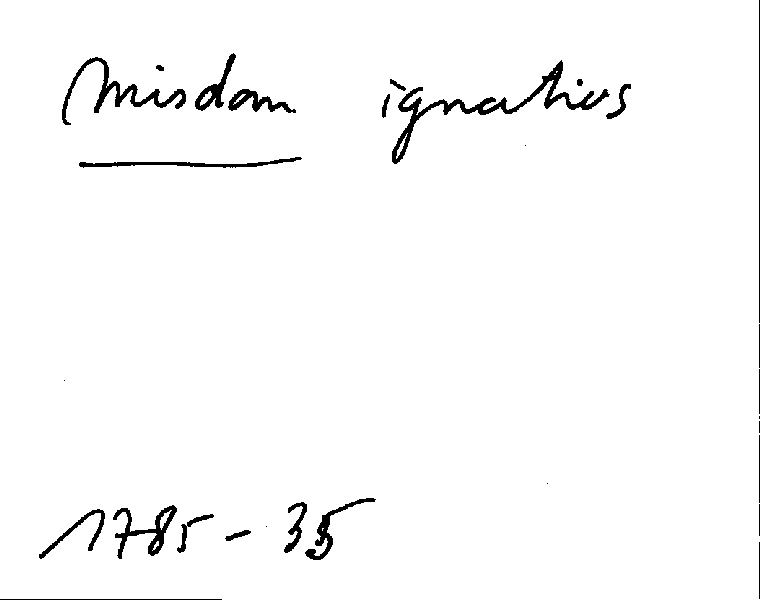 Misdom ignatius
1785-35